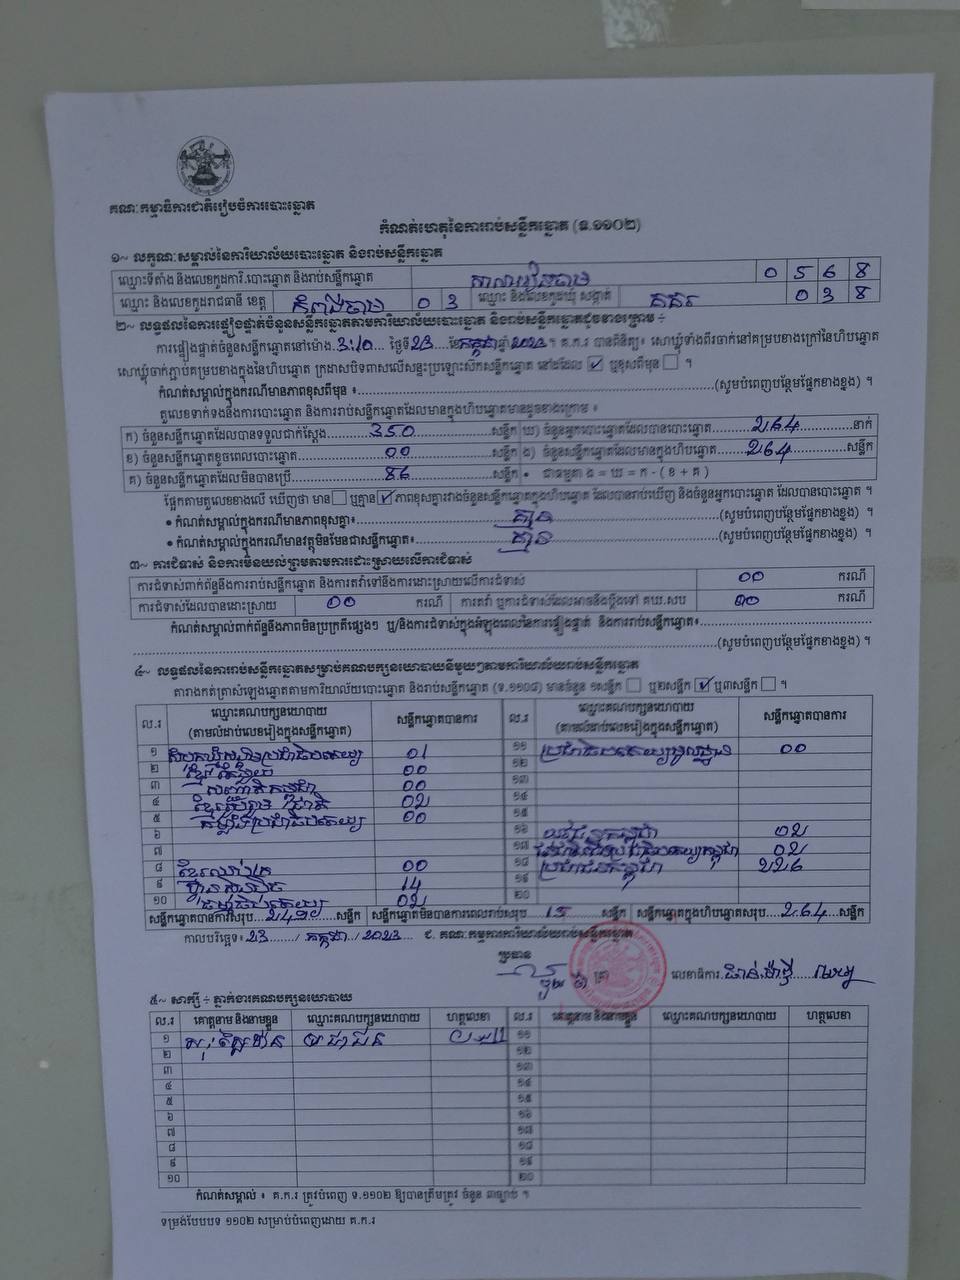 គណៈកម្មាធិការជាតិរៀបចំការបោះឆ្នោត
កំណត់ហេតុនៃការរាប់សន្លឹកឆ្នោត (ទ.១១០២)
១~ លក្ខណៈសម្គាល់នៃការិយាល័យបោះឆ្នោត និងរាប់សន្លឹកឆ្នោត
ឈ្មោះទីតាំង និងលេខកូដការិ.បោះឆ្នោត និងរាប់សន្លឹកឆ្នោត 0 5 6 8
ឈ្មោះ និងលេខកូដរាជធានី ខេត្ត កំពង់ចាម 0 3 ឈ្មោះ និងលេខកូដឃុំ សង្កាត់ គគរ 0 3 8
២~ លទ្ធផលនៃការផ្ទៀងផ្ទាត់ចំនួនសន្លឹកឆ្នោតតាមការិយាល័យបោះឆ្នោត និងរាប់សន្លឹកឆ្នោតដូចខាងក្រោម ÷
ការផ្ទៀងផ្ទាត់ចំនួនសន្លឹកឆ្នោតនៅម៉ោង 3:10 ថ្ងៃទី 23 ខែ កក្កដា ឆ្នាំ 2023 ។ គ.ក.រ បានពិនិត្យ៖ សោឃ្លុំទាំងពីរចាក់នៅគម្របខាងក្រៅនៃហិបឆ្នោត
សោឃ្លុំចាក់ភ្ជាប់គម្របខាងក្នុងនៃហិបឆ្នោត ក្រដាសបិទពាសលើសន្ទះប្រឡោះស៊កសន្លឹកឆ្នោត នៅដដែល ✓ ឬខុសពីមុន ។
កំណត់សម្គាល់ក្នុងករណីមានភាពខុសពីមុន ÷ (សូមបំពេញបន្ថែមផ្នែកខាងខ្នង) ។
តួលេខទាក់ទងនឹងការបោះឆ្នោត និងការរាប់សន្លឹកឆ្នោតដែលមានក្នុងហិបឆ្នោតមានដូចខាងក្រោម ៖
ក) ចំនួនសន្លឹកឆ្នោតដែលបានទទួលជាក់ស្តែង 350 សន្លឹក ឃ) ចំនួនអ្នកបោះឆ្នោតដែលបានបោះឆ្នោត 264 នាក់
ខ) ចំនួនសន្លឹកឆ្នោតខូចពេលបោះឆ្នោត 00 សន្លឹក ង) ចំនួនសន្លឹកឆ្នោតដែលមានក្នុងហិបឆ្នោត 264 សន្លឹក
គ) ចំនួនសន្លឹកឆ្នោតដែលមិនបានប្រើ 86 សន្លឹក • ជាធម្មតា ង = ឃ = ក - ( ខ + គ )
ផ្អែកតាមតួលេខខាងលើ ឃើញថា មាន ឬគ្មាន ✓ ភាពខុសគ្នារវាងចំនួនសន្លឹកឆ្នោតក្នុងហិបឆ្នោត ដែលបានរាប់ឃើញ និងចំនួនអ្នកបោះឆ្នោត ដែលបានបោះឆ្នោត ។
• កំណត់សម្គាល់ក្នុងករណីមានភាពខុសគ្នា៖ គ្មាន (សូមបំពេញបន្ថែមផ្នែកខាងខ្នង) ។
• កំណត់សម្គាល់ក្នុងករណីមានវត្ថុមិនមែនជាសន្លឹកឆ្នោត៖ គ្មាន (សូមបំពេញបន្ថែមផ្នែកខាងខ្នង) ។
៣~ ការជំទាស់ និងការមិនយល់ព្រមតាមការដោះស្រាយលើការជំទាស់
ការជំទាស់ពាក់ព័ន្ធនឹងការរាប់សន្លឹកឆ្នោត និងការតវ៉ាទៅនឹងការដោះស្រាយលើការជំទាស់ 00 ករណី
ការជំទាស់ដែលបានដោះស្រាយ 00 ករណី ការតវ៉ា ឬការជំទាស់ដែលអាចនឹងប្តឹងទៅ គឃ.សប 00 ករណី
កំណត់សម្គាល់ពាក់ព័ន្ធនឹងភាពមិនប្រក្រតីផ្សេងៗ ឬ/និងការជំទាស់ក្នុងអំឡុងពេលនៃការផ្ទៀងផ្ទាត់ និងការរាប់សន្លឹកឆ្នោត៖
(សូមបំពេញបន្ថែមផ្នែកខាងខ្នង) ។
៤~ លទ្ធផលនៃការរាប់សន្លឹកឆ្នោតសម្រាប់គណបក្សនយោបាយនីមួយៗតាមការិយាល័យរាប់សន្លឹកឆ្នោត
តារាងកត់ត្រាសំឡេងឆ្នោតតាមការិយាល័យបោះឆ្នោត និងរាប់សន្លឹកឆ្នោត (ទ.១១០៨) មានចំនួន ១សន្លឹក ឬ២សន្លឹក ✓ ឬ៣សន្លឹក ។
ល.រ ឈ្មោះគណបក្សនយោបាយ (តាមលំដាប់លេខរៀងក្នុងសន្លឹកឆ្នោត) សន្លឹកឆ្នោតបានការ ល.រ ឈ្មោះគណបក្សនយោបាយ (តាមលំដាប់លេខរៀងក្នុងសន្លឹកឆ្នោត) សន្លឹកឆ្នោតបានការ
១ សំបុកឃ្មុំសង្គមប្រជាធិបតេយ្យ 01 ១១ ប្រជាធិបតេយ្យមូលដ្ឋាន 00
២ ខ្មែរ 00 ១២
៣ សញ្ជាតិកម្ពុជា 00 ១៣
៤ ខ្មែររួបរួមជាតិ 02 ១៤
៥ កម្លាំងប្រជាធិបតេយ្យ 00 ១៥
៦ ១៦ យុវជនកម្ពុជា 02
៧ ១៧ 02
៨ ខ្មែរឈប់ក្រ 00 ១៨ ប្រជាជនកម្ពុជា 226
៩ ហ្វ៊ុនស៊ិនប៉ិច 14 ១៩
១០ ធម្មាធិបតេយ្យ 02 ២០
សន្លឹកឆ្នោតបានការសរុប 249 សន្លឹក សន្លឹកឆ្នោតមិនបានការពេលរាប់សរុប 15 សន្លឹក សន្លឹកឆ្នោតក្នុងហិបឆ្នោតសរុប 264 សន្លឹក
កាលបរិច្ឆេទ៖ 23 / កក្កដា / 2023 ជ. គណៈកម្មការការិយាល័យរាប់សន្លឹកឆ្នោត
ប្រធាន
លេខាធិការ
៥~ សាក្សី ÷ ភ្នាក់ងារគណបក្សនយោបាយ
ល.រ គោត្តនាម និងនាមខ្លួន ឈ្មោះគណបក្សនយោបាយ ហត្ថលេខា ល.រ គោត្តនាម និងនាមខ្លួន ឈ្មោះគណបក្សនយោបាយ ហត្ថលេខា
១ ១១
២ ១២
៣ ១៣
៤ ១៤
៥ ១៥
៦ ១៦
៧ ១៧
៨ ១៨
៩ ១៩
១០ ២០
កំណត់សម្គាល់ ៖ គ.ក.រ ត្រូវបំពេញ ទ.១១០២ ឱ្យបានត្រឹមត្រូវ ចំនួន ៣ច្បាប់ ។
ទម្រង់បែបបទ ១១០២ សម្រាប់បំពេញដោយ គ.ក.រ